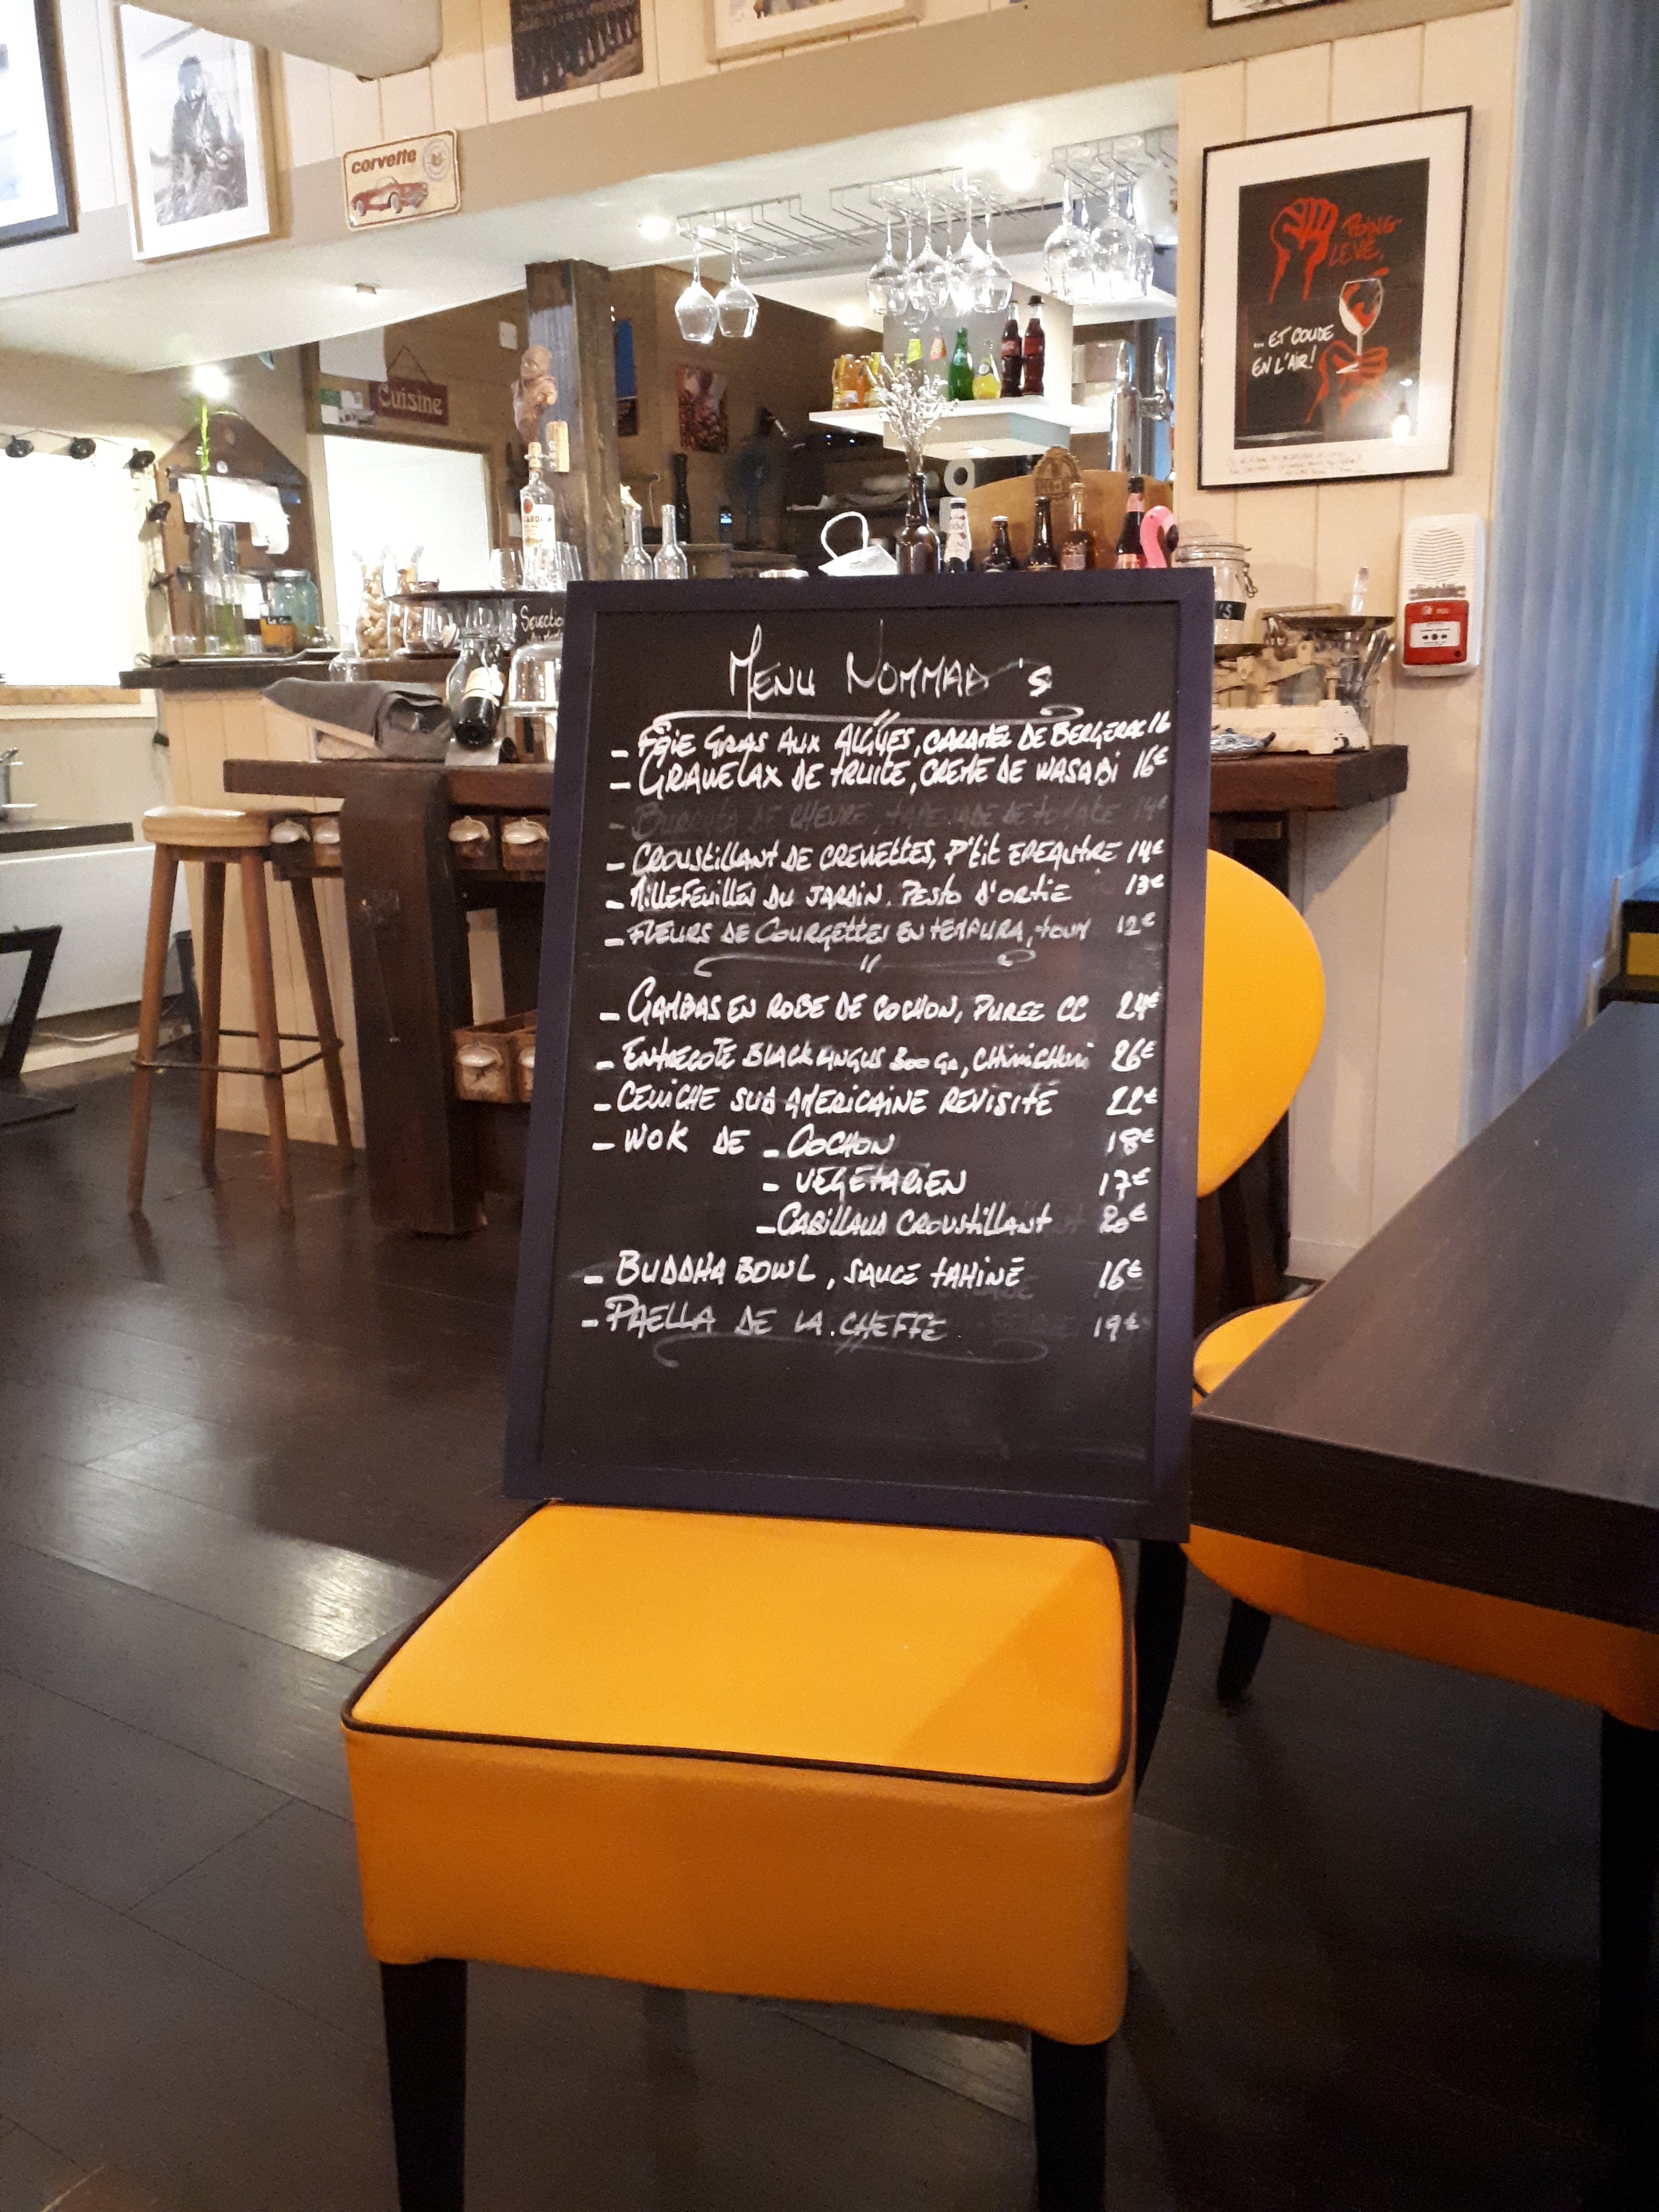 corvette
POING
LEVÉ,
... ET COUDE
EN L'AIR!
Cuisine
Selection
MENU NOMMAD'S
- FOIE GRAS AUX ALGUES, CARAMEL DE BERGERAC 16
- GRAVELAX DE TRUITE, CREME DE WASABI 16€
- BURRATA DE CHEVRE, TAPENADE DE TOMATE 14€
- CROUSTILLANT DE CREVETTES, P'TIT EPEAUTRE 14€
- MILLEFEUILLES DU JARDIN, PESTO D'ORTIE 13€
- FLEURS DE COURGETTES EN TEMPURA, TOUM 12€
- GAMBAS EN ROBE DE COCHON, PUREE CC 24€
- ENTRECOTE BLACK ANGUS 300 GR, CHIMICHURI 26€
- CEVICHE SUD AMERICAINE REVISITÉ 22€
- WOK DE - COCHON 18€
- VEGETARIEN 17€
- CABILLAUD CROUSTILLANT 20€
- BUDDHA BOWL, SAUCE TAHINÉ 16€
- PAELLA DE LA CHEFFE 19€